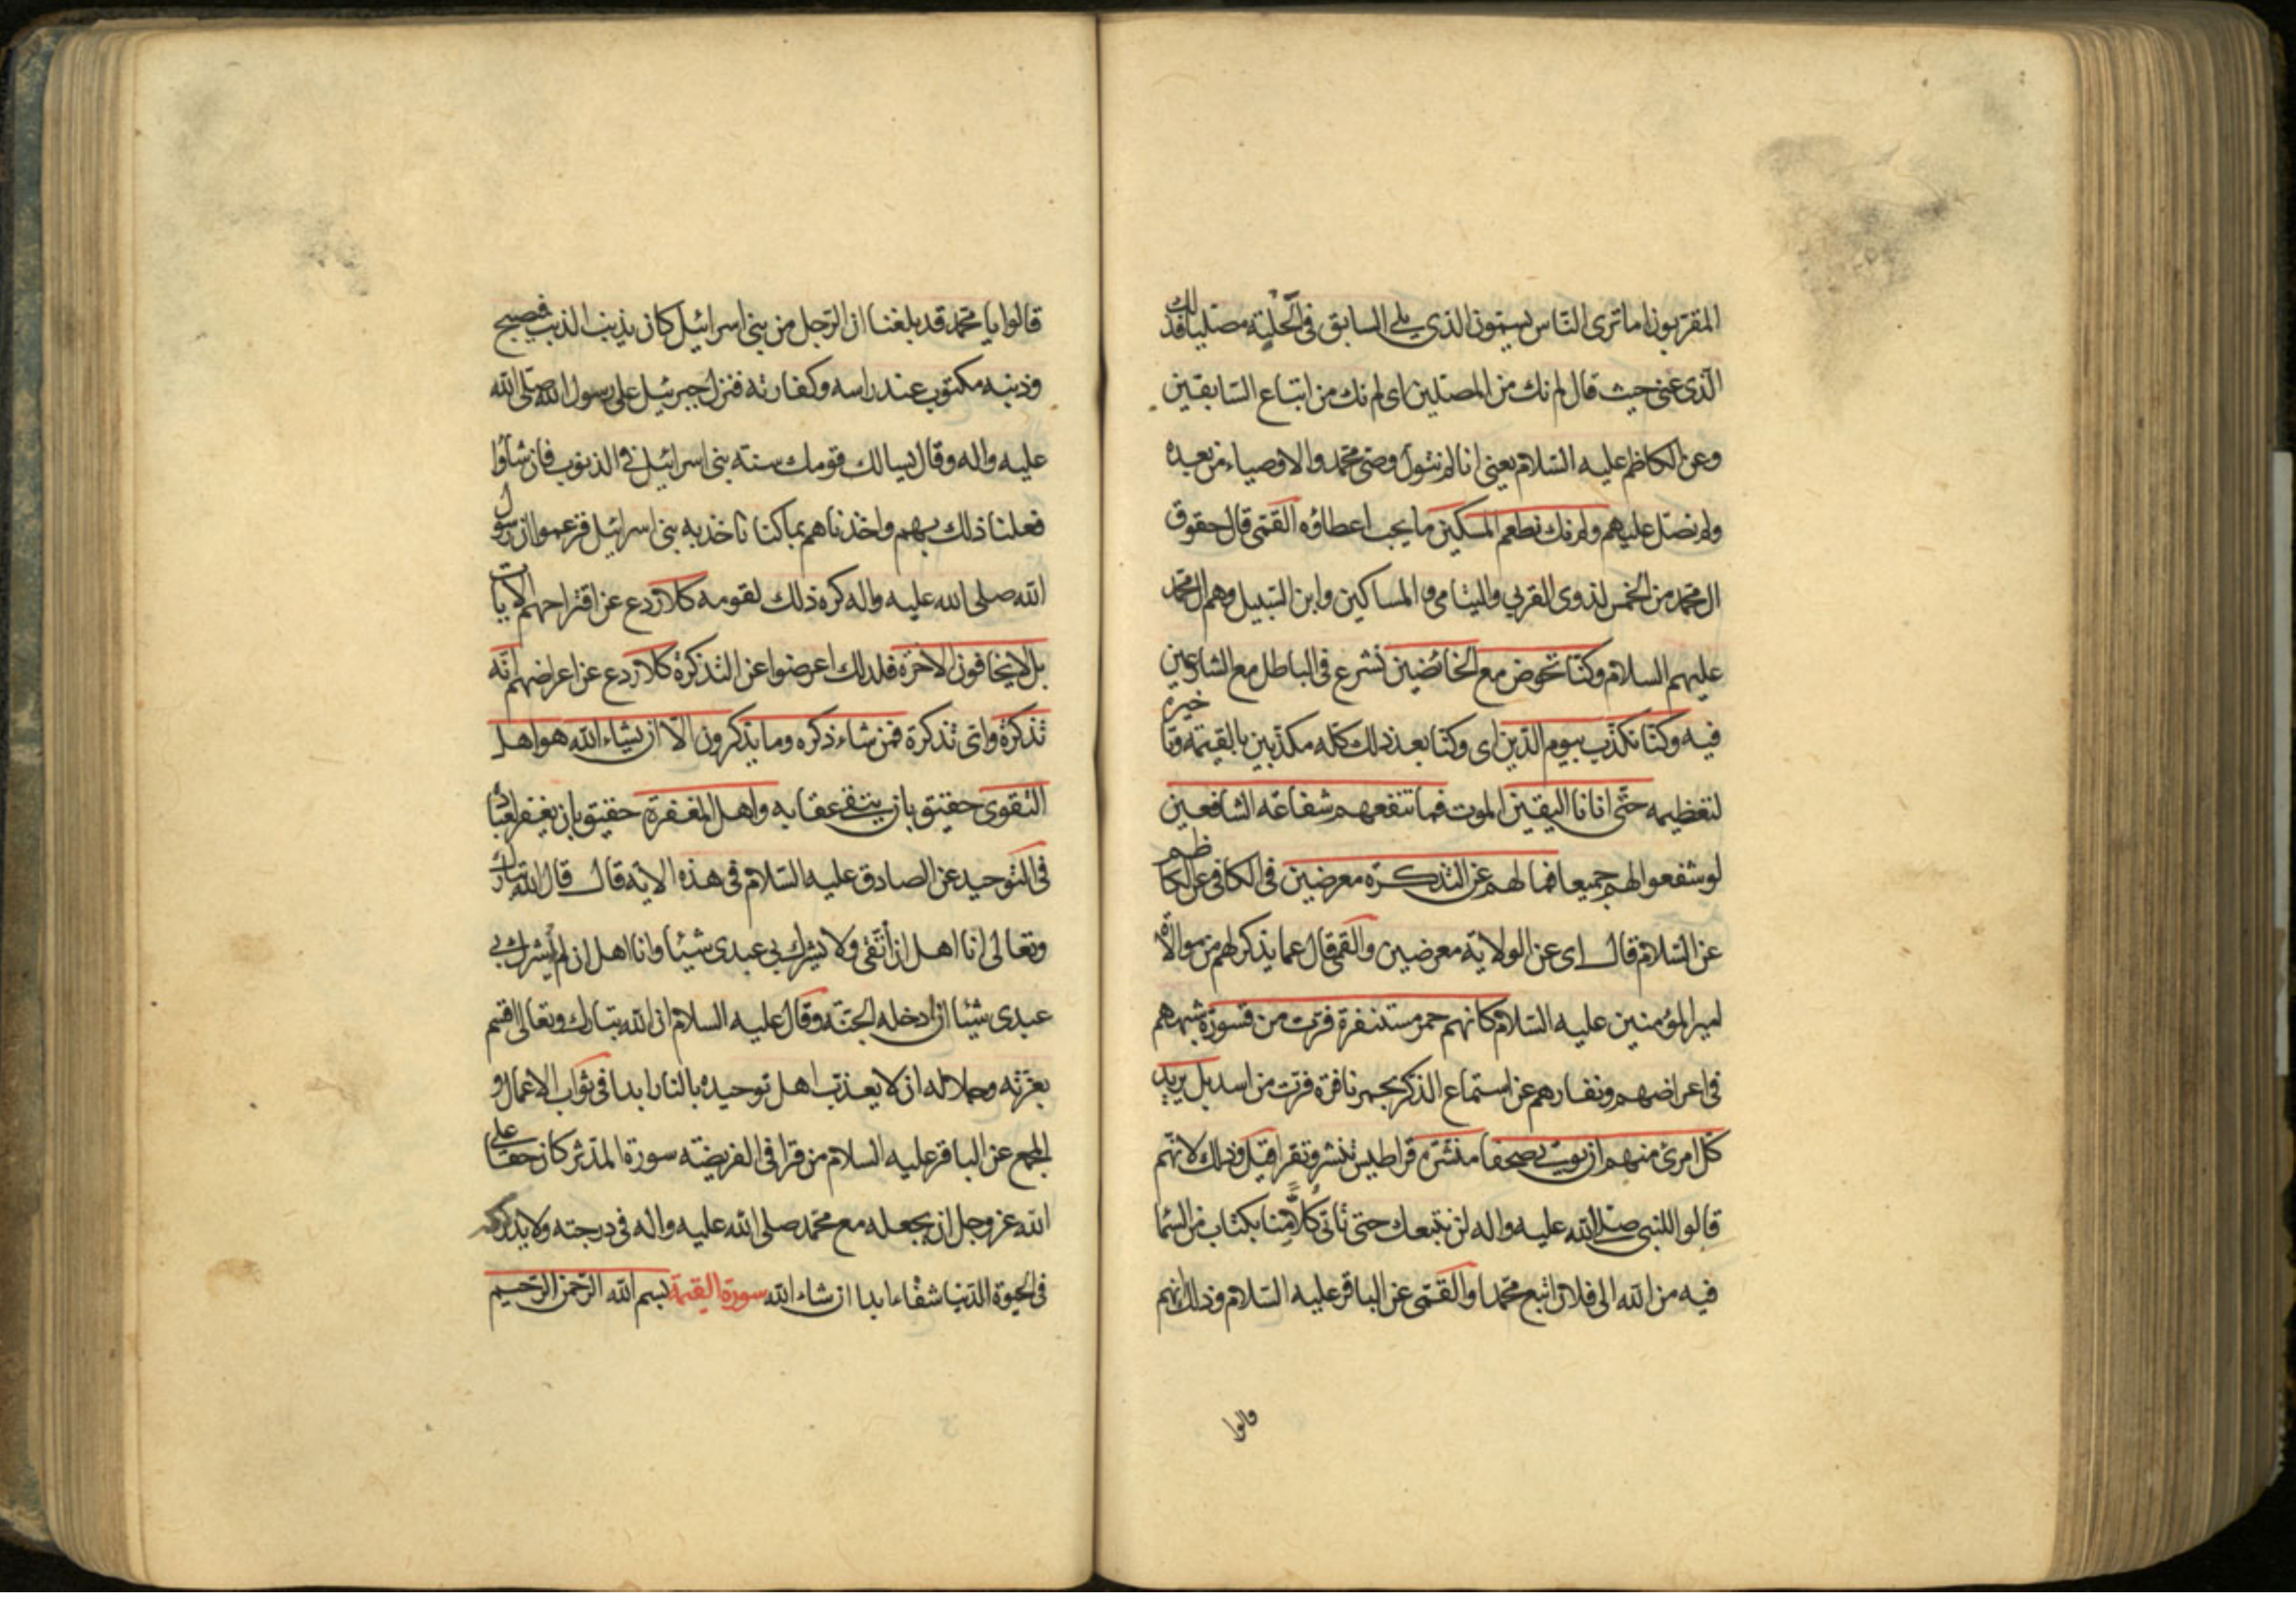 المقربون اما ترى الناس يسمون الذى يلى السابق فى الحلبة مصليا فذلك
الذى عنى حيث قال لم نك من المصلين اى لم نك من اتباع السابقين
وعن الكاظم عليه السلام يعنى انا لم نتول وصى محمد والاوصياء من بعده
ولم نصل عليهم ولم نك نطعم المسكين ما يجب اعطاؤه القمى قال حقوق
ال محمد من الخمس لذوى القربى واليتامى والمساكين وابن السبيل وهم ال محمد
عليهم السلام وكنا نخوض مع الخائضين نشرع فى الباطل مع الشارعين
فيه وكنا نكذب بيوم الدين اى وكنا بعد ذلك كله مكذبين بالقيمة وتاخيره
لتعظيمه حتى اتانا اليقين الموت فما تنفعهم شفاعة الشافعين
لو شفعوا لهم جميعا فما لهم عن التذكرة معرضين فى الكافى عن الكاظم
عن السلام قال اى عن الولاية معرضين والقمى قال عما يذكر لهم من موالاة
امير المؤمنين عليه السلام كانهم حمر مستنفرة فرت من قسورة شبههم
فى اعراضهم ونفارهم عن استماع الذكر بحمر نافرة فرت من اسد بل يريد
كل امرئ منهم ان يؤتى صحفا منشرة قراطيس تنشر وتقرا قيل وذلك لانهم
قالوا للنبى صلى الله عليه واله لن نتبعك حتى تاتى كلا منا بكتاب من السما
فيه من الله الى فلان اتبع محمدا والقمى عن الباقر عليه السلام وذلك انهم
قالوا
قالوا يا محمد قد بلغنا ان الرجل من بنى اسرائيل كان يذنب الذنب فيصبح
وذنبه مكتوب عند راسه وكفارته فنزل جبرئيل على رسول الله صلى الله
عليه واله وقال يسالك قومك سنة بنى اسرائيل فى الذنوب فان شاؤا
فعلنا ذلك بهم واخذناهم بما كنا ناخذ به بنى اسرائيل فزعموا ان رسول
الله صلى الله عليه واله كره ذلك لقومه كلا ردع عن اقتراحهم الايات
بل لا يخافون الاخرة فلذلك اعرضوا عن التذكرة كلا ردع عن اعراضهم انه
تذكرة واى تذكرة فمن شاء ذكره وما يذكرون الا ان يشاء الله هو اهل
التقوى حقيق بان يتقى عقابه واهل المغفرة حقيق بان يغفر لعباده
فى التوحيد عن الصادق عليه السلام فى هذه الاية قال قال الله تبارك
وتعالى انا اهل ان اتقى ولا يشرك بى عبدى شيئا وانا اهل ان لم يشرك بى
عبدى شيئا ان ادخله الجنة وقال عليه السلام ان الله تبارك وتعالى اقسم
بعزته وجلاله ان لا يعذب اهل توحيده بالنار ابدا فى ثواب الاعمال و
المجمع عن الباقر عليه السلام من قرا فى الفريضة سورة المدثر كان حقا على
الله عز وجل ان يجعله مع محمد صلى الله عليه واله فى درجته ولا يدركه
فى الحيوة الدنيا شقاء ابدا ان شاء الله سورة القيمة بسم الله الرحمن الرحيم